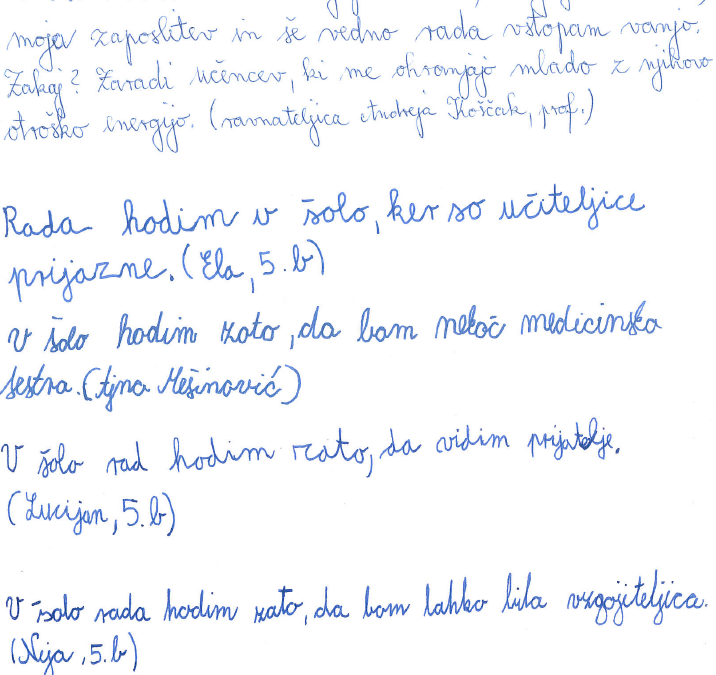 moja zaposlitev in še vedno rada vstopam vanjo.
Zakaj? Zaradi učencev, ki me ohranjajo mlado z njihovo
otroško energijo. (ravnateljica Andreja Koščak, prof.)
Rada hodim v šolo, ker so učiteljice
prijazne. (Ela, 5. b)
V šolo hodim zato, da bom nekoč medicinska
sestra. (Ajna Mešinović)
V šolo rad hodim zato, da vidim prijatelje.
(Lucijan, 5. b)
V šolo rada hodim zato, da bom lahko bila vzgojiteljica.
(Nija, 5. b)